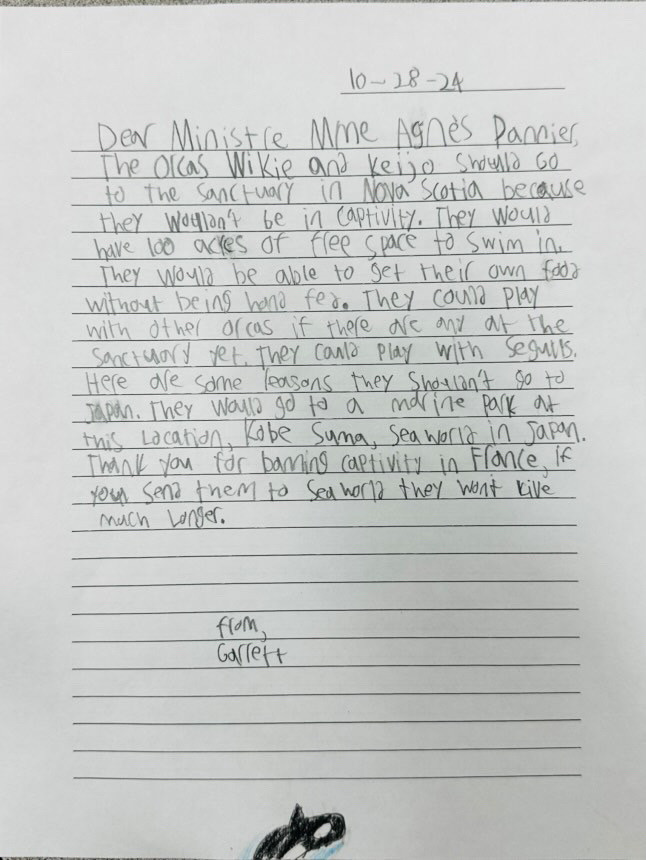 10-28-24
Dear Ministre Mme Agnès Pannier,
The orcas Wikie and Keijo should go
to the sanctuary in Nova Scotia because
they wouldn't be in captivity. They would
have 100 acres of free space to swim in.
They would be able to get their own food
without being hand fed. They could play
with other orcas if there are any at the
sanctuary yet. They could play with seguls.
Here are some reasons they shouldn't go to
Japan. They would go to a marine park at
this Location, Kobe Suma, Sea world in Japan.
Thank you for banning captivity in France, if
you send them to Sea world they wont live
much longer.
from,
Garrett